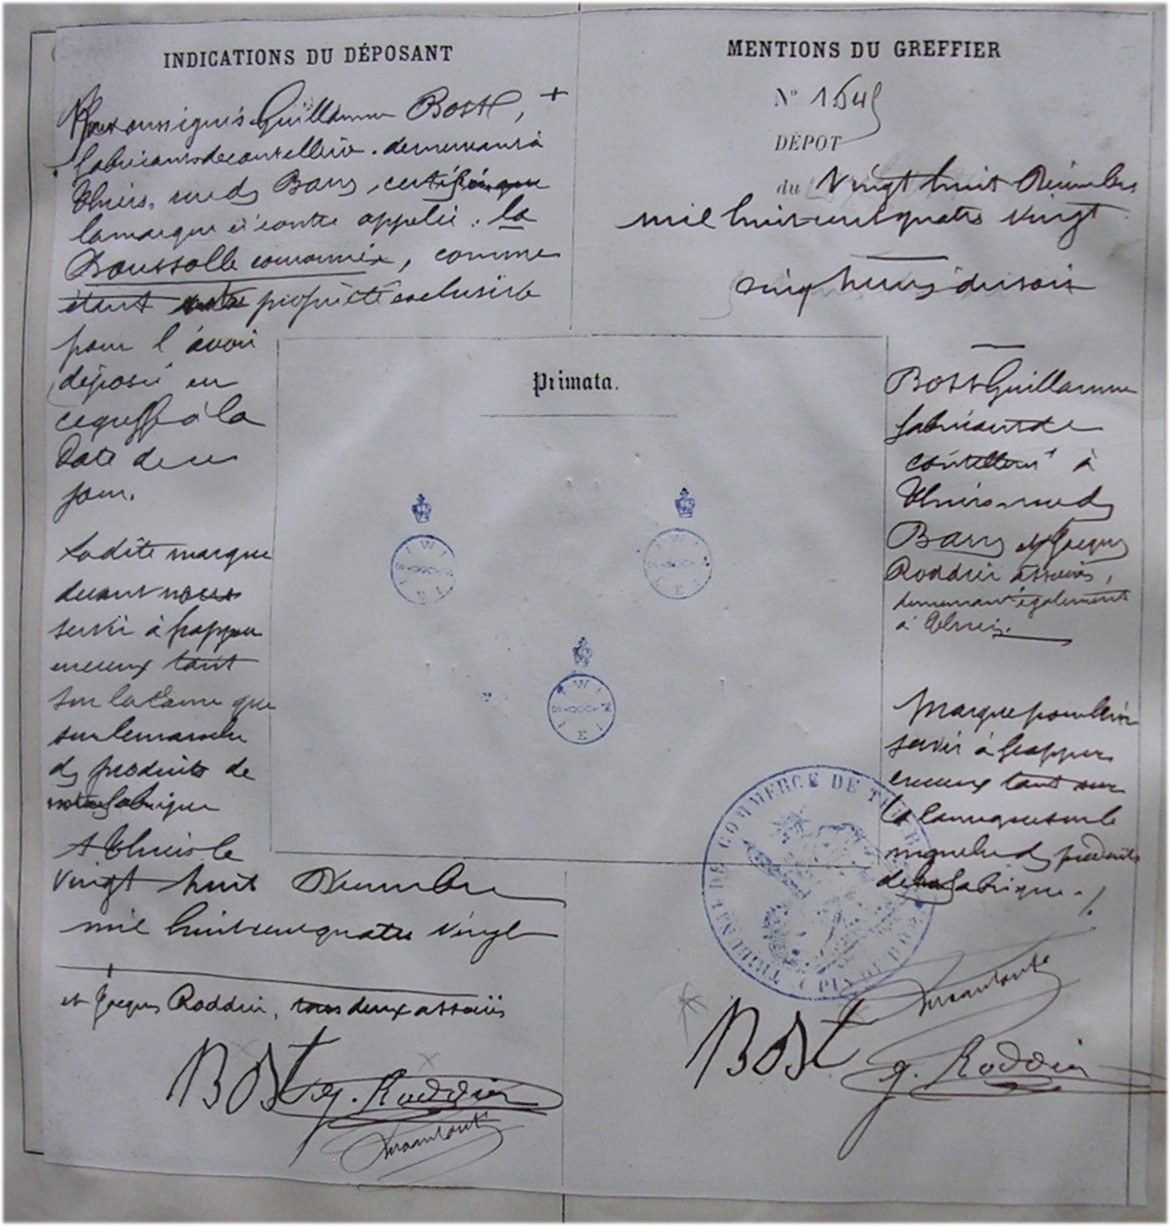 INDICATIONS DU DÉPOSANT
Nous soussignés Guillaume Bost, +
fabricants de coutellerie demeurant à
Thiers, rue des Bary, certifions que
la marque ci contre appelée : la
Boussolle couronnée, comme
étant notre propriété exclusive
pour l'avoir
déposé en
ce greffe à la
Date de ce
jour.
Ladite marque
devant nous
servir à frapper
en creux tant
sur la lame que
sur le manche
des produits de
notre fabrique
A Thiers le
vingt huit Décembre
mil huit cent quatre vingt
+
et Jacques Roddier, tous deux associés
BOST g. Roddier
MENTIONS DU GREFFIER
N° 1545
DÉPOT
du Vingt huit Décembre
mil huit cent quatre vingt
cinq heures du soir
Primata.
W I N E I S
W I N E I S
W I N E I S
Bost Guillaume
fabricant de
coutellerie à
Thiers rue des
Bary et Jacques
Roddier associés,
demeurant également
à Thiers.
Marque pour leur
servir à frapper
en creux tant sur
la lame que sur le
manche des produits
de leur fabrique.
TRIBUNAL DE COMMERCE DE THIERS
PUY DE DOME
BOST g. Roddier